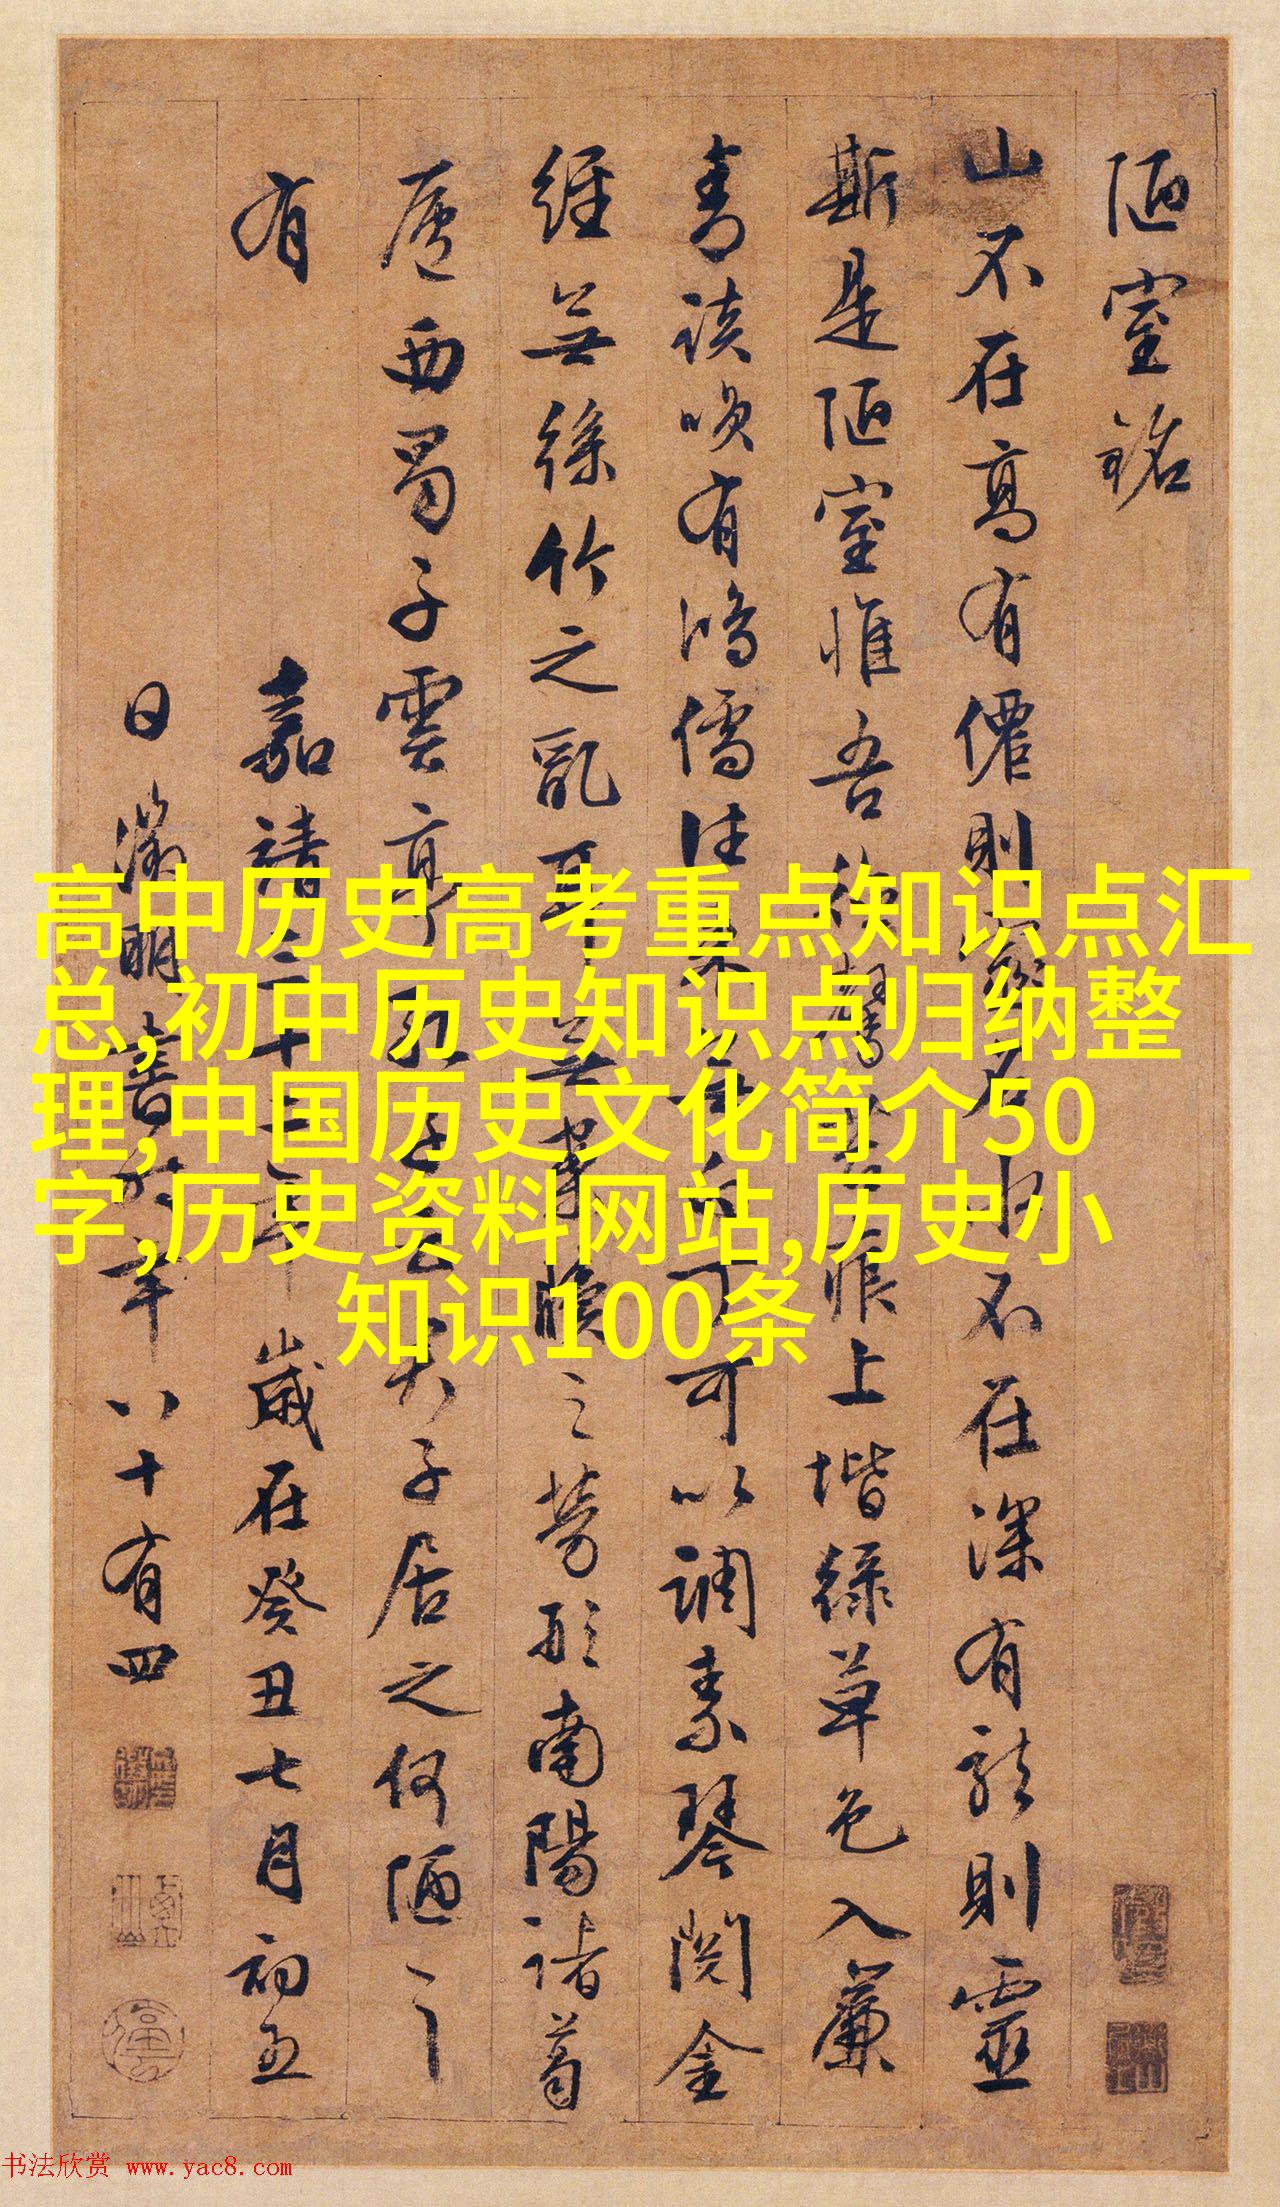 陋室銘
山不在高有僊則名水不在深有龍則靈
斯是陋室惟吾德馨苔痕上堦綠草色入簾
青談咲有鴻儒往來無白丁可以調素琴閱金
經無絲竹之亂耳無案牘之勞形南陽諸葛
廬西蜀子雲亭孔子云君子居之何陋之
有
嘉靖三十二年歲在癸丑七月初五
日徵明書時年八十有四
高中历史高考重点知识点汇
总,初中历史知识点归纳整
理,中国历史文化简介50
字,历史资料网站,历史小
知识100条
书法欣赏 www.yac8.com